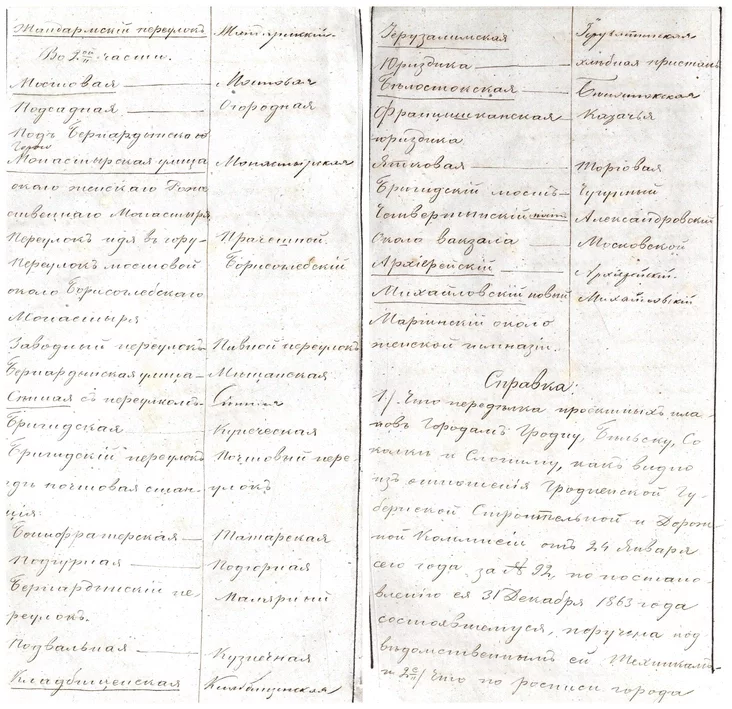 Жандармскій переулокъ Жандармскій.
Во 2ой части.
Мостовая Мостовая
Подсадная Огородная
Подъ Бернардинскою
горою
Монастырская улица Монастырская
около женскаго Рожде
ственнаго Монастыря
Переулокъ идя въ гору Прачешной.
Переулокъ мостовой Борисоглебскій
около Борисоглебскаго
Монастыря
Заводный переулокъ Пивной переулокъ
Бернардынская улица Мѣщанская
Сѣнная съ переулкомъ Сѣнная
Бригидская Купеческая
Бригидскій переулокъ Почтовый пере
гдѣ почтовая стан- улокъ
ція.
Бонифратерская Татарская
Подгорная Подгорная
Бернардынскій пе- Малярный
реулокъ.
Подвальная Кузнечная
Кладбищенская Кладбищенская
Іерузалимская Іерузалимская
Юриздика хлѣбная пристань
Бѣлостокская Бѣлостокская
Францишканская Казачья
юриздика
Ятковая Торговая
Бригидскій мостъ Чугунный
Четвертынскій Александровскій
Около вокзала Московской
Архіерейскій Архіерейскій.
Михайловскій новый Михайловскій
Маріинскій около
женской гимназіи.
Справка:
1) Что передѣлка проектныхъ пла-
новъ городамъ Гродну, Бѣльску, Со
колки и Слониму, какъ видно
изъ отношенія Гродненской Гу-
бернской Строительной и Дорож-
ной Коммисіи отъ 24 Января
сего года за № 92, по постано-
вленію ея 31 Декабря 1863 года
состоявшемуся, поручена под
вѣдомственнымъ ей Техникамъ-
и 2е) Что по росписи города